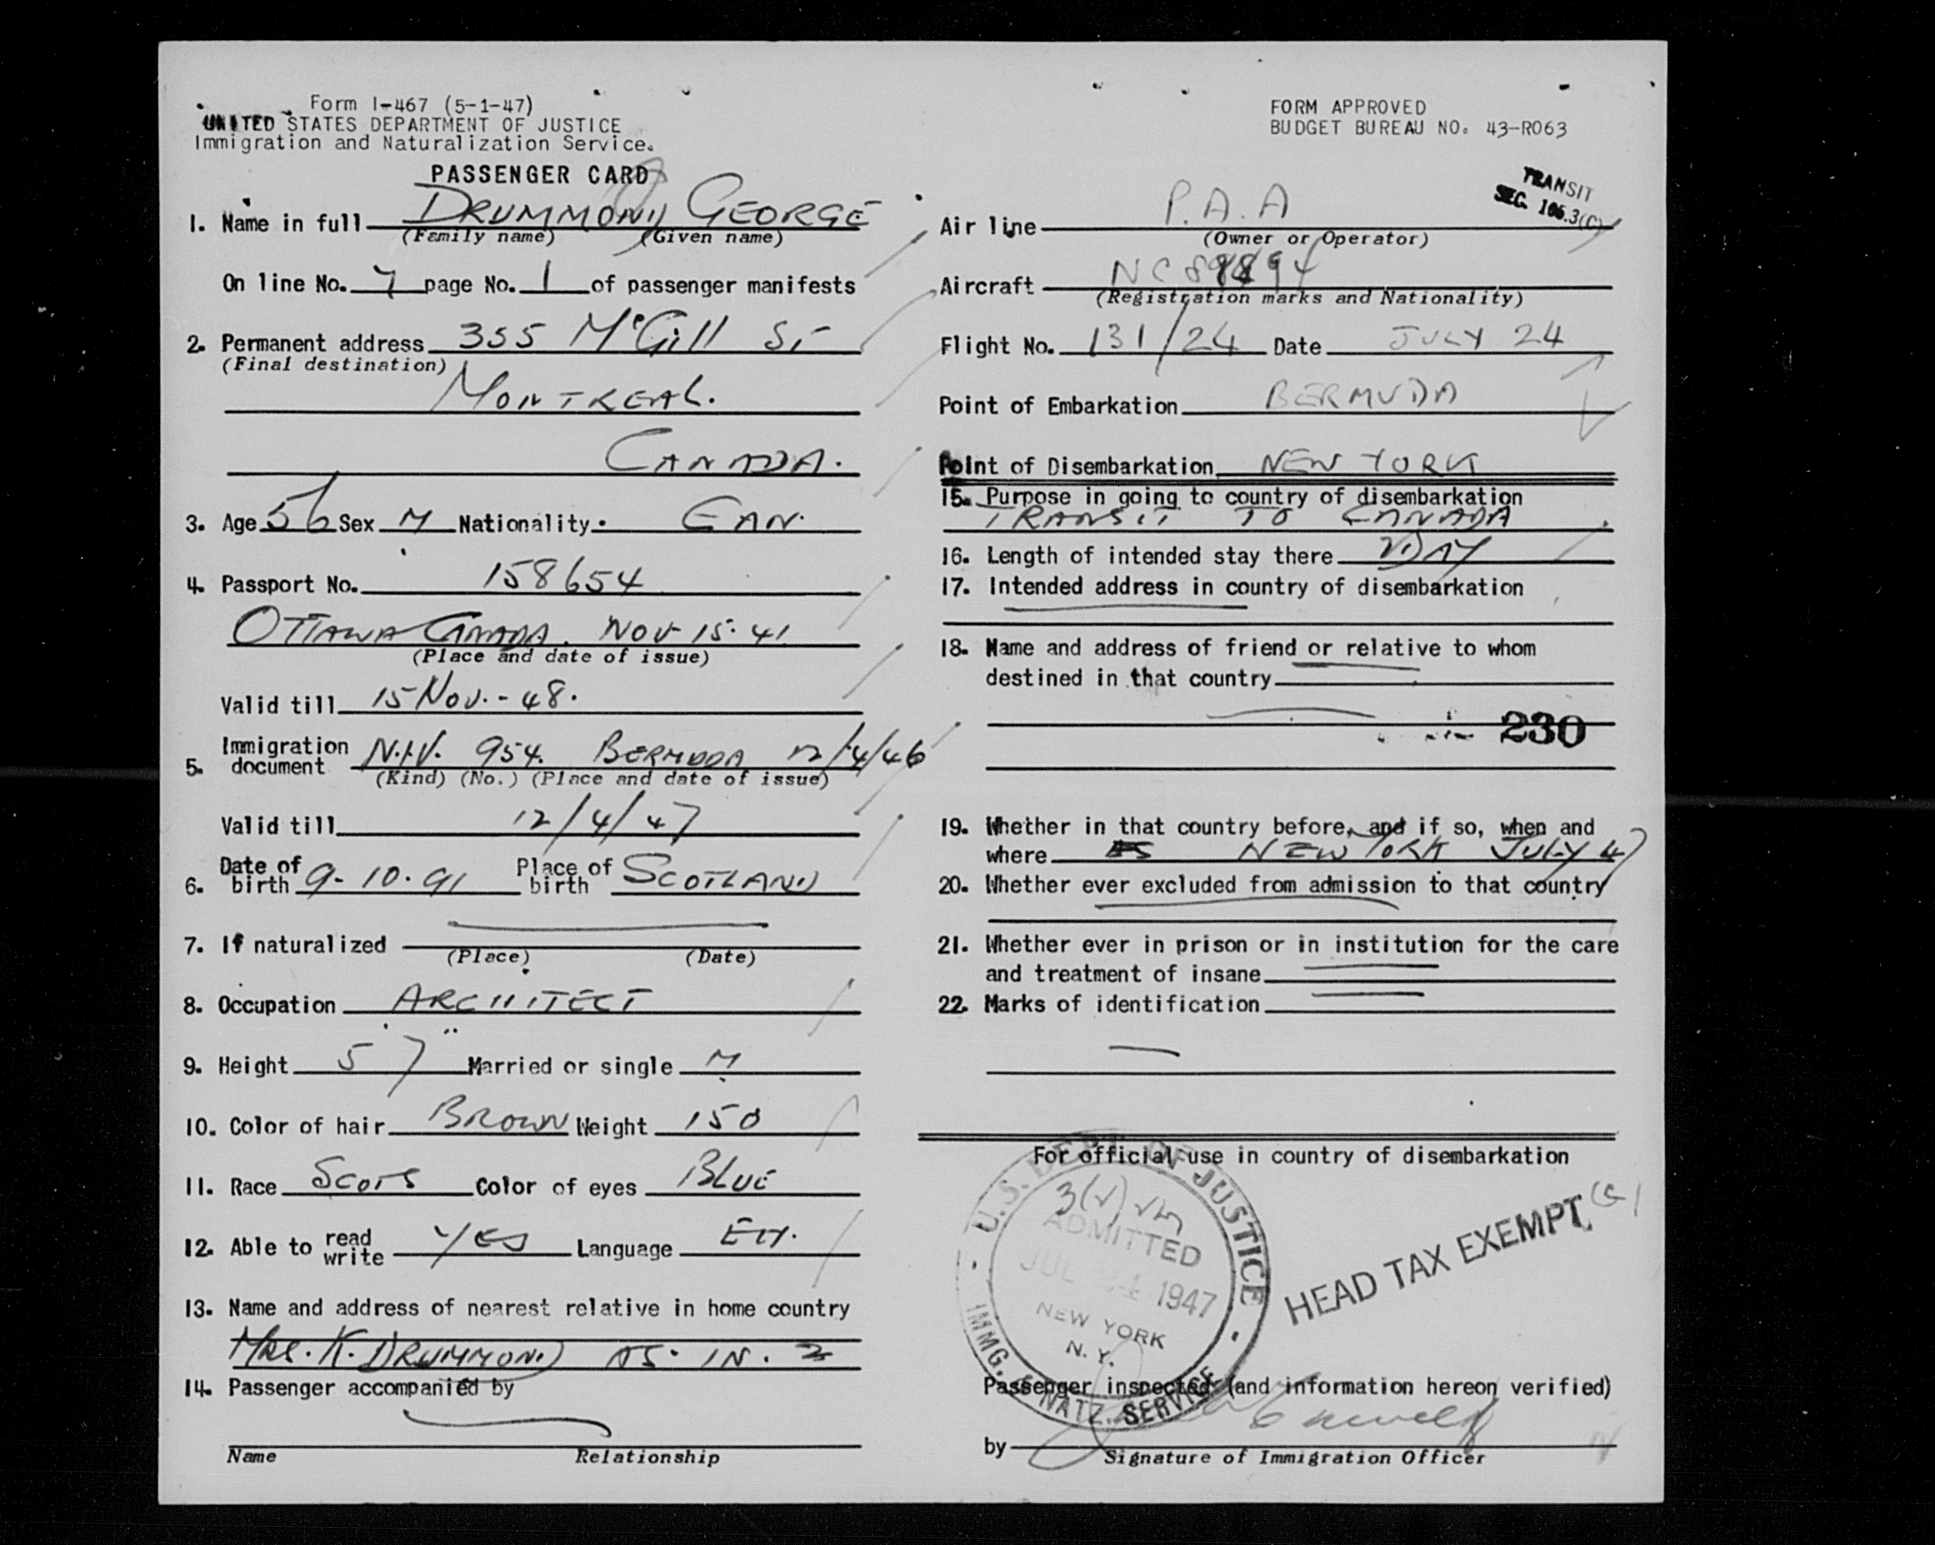 Form I-467 (5-1-47)
UNITED STATES DEPARTMENT OF JUSTICE
Immigration and Naturalization Service.
PASSENGER CARD
1. Name in full DRUMMOND, GEORGE
(Family name) (Given name)
On line No. 7 page No. 1 of passenger manifests
2. Permanent address 355 McGill St
(Final destination)
MONTREAL.
CANADA.
3. Age 56 Sex M Nationality. CAN.
4. Passport No. 158654
OTTAWA CANADA. NOV 15. 41
(Place and date of issue)
Valid till 15 Nov. - 48.
5. Immigration document N.I.V. 954. BERMUDA 12/4/46
(Kind) (No.) (Place and date of issue)
Valid till 12/4/47
6. Date of birth 9. 10. 91 Place of birth SCOTLAND
7. If naturalized
(Place) (Date)
8. Occupation ARCHITECT
9. Height 5' 7" Married or single M
10. Color of hair BROWN Weight 150
11. Race SCOTS Color of eyes BLUE
12. Able to read write YES Language
13. Name and address of nearest relative in home country
MRS. K. DRUMMOND AS. IN. 2
14. Passenger accompanied by
Name Relationship
FORM APPROVED
BUDGET BUREAU NO. 43-R063
TRANSIT
SEC. 106.3(C)
Air line P.A.A
(Owner or Operator)
Aircraft
(Registration marks and Nationality)
Flight No. 131/24 Date JULY 24
Point of Embarkation BERMUDA
Point of Disembarkation NEW YORK
15. Purpose in going to country of disembarkation
TRANSIT TO CANADA
16. Length of intended stay there DAY
17. Intended address in country of disembarkation
18. Name and address of friend or relative to whom
destined in that country
230
19. Whether in that country before, and if so, when and
where NEW YORK JULY 47
20. Whether ever excluded from admission to that country
21. Whether ever in prison or in institution for the care
and treatment of insane
22. Marks of identification
For official use in country of disembarkation
U.S. DEPT. OF JUSTICE
ADMITTED
JUL 24 1947
NEW YORK
N.Y.
IMMG. & NATZ. SERVICE
HEAD TAX EXEMPT
Passenger inspected (and information hereon verified)
by
Signature of Immigration Officer